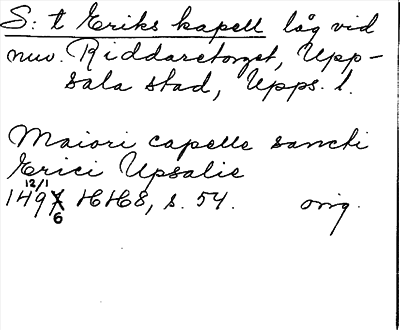 S:t Eriks kapell låg vid
nuv. Riddaretorget, Upp-
sala stad, Upps. l.
Maiori capelle sancti
Erici Upsalie
12/1
1496 HH8, s. 54. orig.